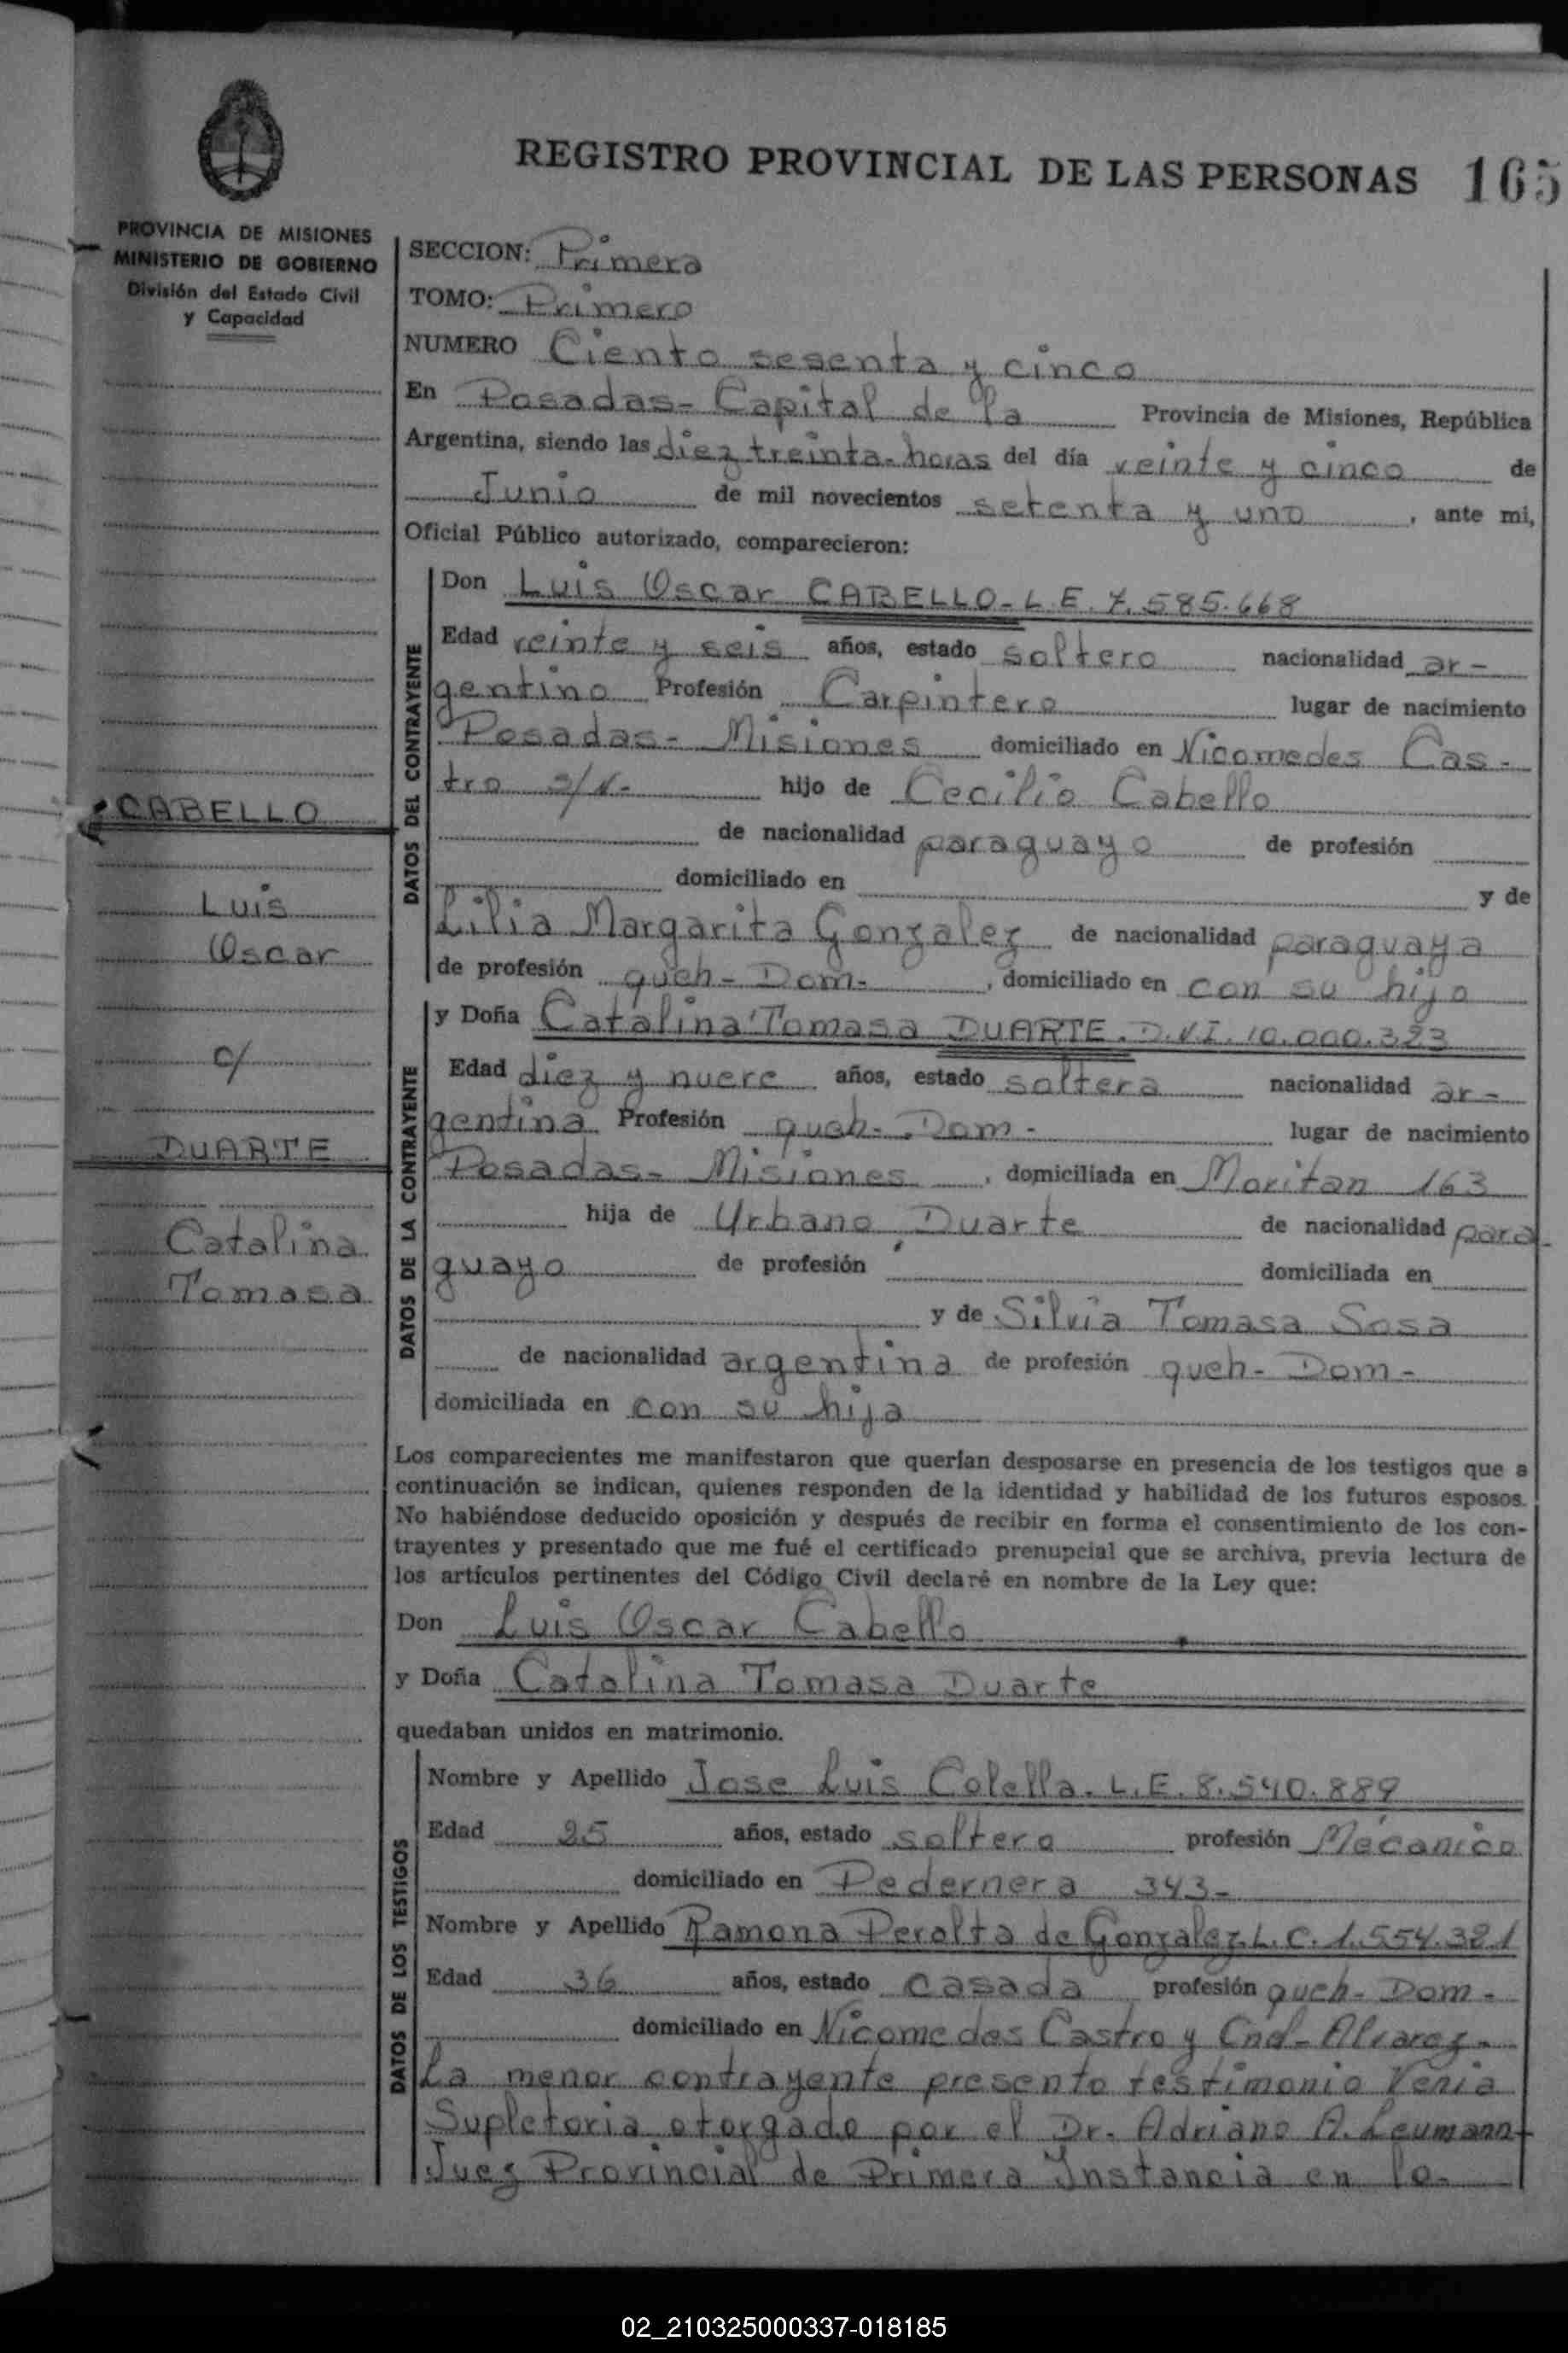 REGISTRO PROVINCIAL DE LAS PERSONAS 165
PROVINCIA DE MISIONES
MINISTERIO DE GOBIERNO
División del Estado Civil
y Capacidad
CABELLO
Luis
Oscar
c/
DUARTE
Catalina
Tomasa
SECCION: Primera
TOMO: Primero
NUMERO Ciento sesenta y cinco
En Posadas- Capital de la Provincia de Misiones, República
Argentina, siendo las diez treinta- horas del día veinte y cinco de
Junio de mil novecientos setenta y uno, ante mi,
Oficial Público autorizado, comparecieron:
DATOS DEL CONTRAYENTE
Don Luis Oscar CABELLO- L.E. 7.585.668
Edad veinte y seis años, estado soltero nacionalidad ar-
gentino Profesión Carpintero lugar de nacimiento
Posadas- Misiones domiciliado en Nicomedes Cas-
tro S/N- hijo de Cecilio Cabello
de nacionalidad paraguayo de profesión
domiciliado en y de
Lilia Margarita Gonzalez de nacionalidad paraguaya
de profesión queh- Dom-, domiciliado en con su hijo
DATOS DE LA CONTRAYENTE
y Doña Catalina Tomasa DUARTE. D.N.I. 10.000.323
Edad diez y nueve años, estado soltera nacionalidad ar-
gentina Profesión queh- Dom- lugar de nacimiento
Posadas- Misiones, domiciliada en Moritan 163
hija de Urbano Duarte de nacionalidad para-
guayo de profesión domiciliada en
y de Silvia Tomasa Sosa
de nacionalidad argentina de profesión queh- Dom-
domiciliada en con su hija
Los comparecientes me manifestaron que querían desposarse en presencia de los testigos que a
continuación se indican, quienes responden de la identidad y habilidad de los futuros esposos.
No habiéndose deducido oposición y después de recibir en forma el consentimiento de los con-
trayentes y presentado que me fué el certificado prenupcial que se archiva, previa lectura de
los artículos pertinentes del Código Civil declaré en nombre de la Ley que:
Don Luis Oscar Cabello
y Doña Catalina Tomasa Duarte
quedaban unidos en matrimonio.
DATOS DE LOS TESTIGOS
Nombre y Apellido Jose Luis Colella. L.E. 8.540.889
Edad 25 años, estado soltero profesión Mécanico
domiciliado en Pedernera 343-
Nombre y Apellido Ramona Peralta de Gonzalez L.C. 1.554.321
Edad 36 años, estado casada profesión queh- Dom-
domiciliado en Nicomedes Castro y Cnel- Alvarez-
La menor contrayente presento testimonio Venia
Supletoria otorgado por el Dr. Adriano A. Leumann
Juez Provincial de Primera Instancia en lo-
02_210325000337-018185